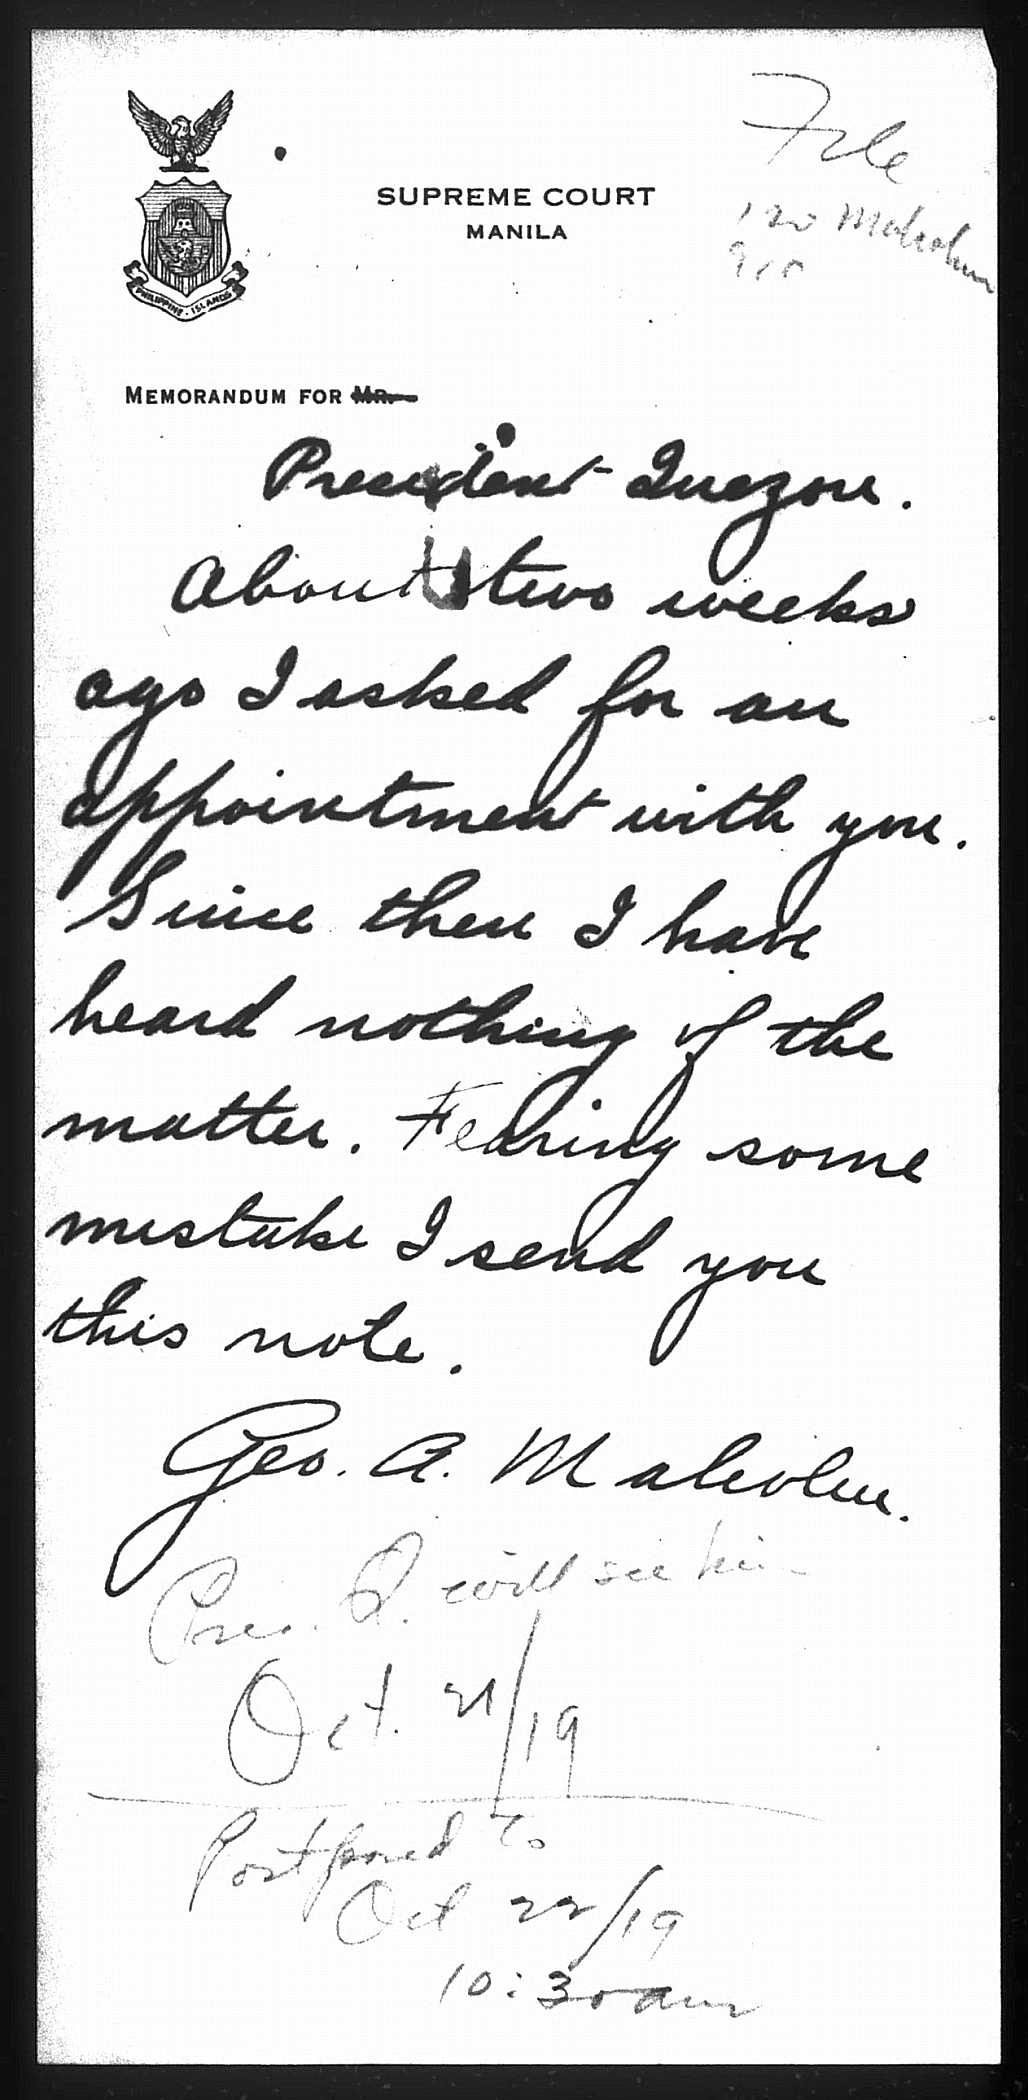 File
120 Malcolm
SUPREME COURT
MANILA
PHILIPPINE · ISLANDS
MEMORANDUM FOR MR.
President Quezon.
About two weeks
ago I asked for an
appointment with you.
Since then I have
heard nothing of the
matter. Fearing some
mistake I send you
this note.
Geo. A. Malcolm.
Pres. Q. will see him
Oct. 21/19
Postponed to
Oct 22/19
10:30 am